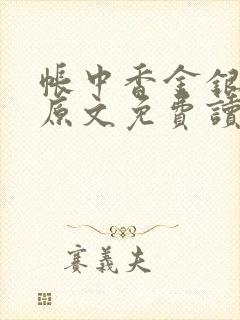 帳中香金銀
原文免費讀
賽義夫